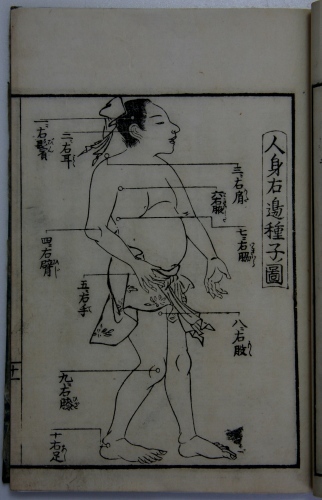 人身右邉種子圖
一、右
二、右耳
三、右肩
四、右臂ひじ
五、右手
六、右脇
七、右
八、右股
九、右膝
十右足
十一